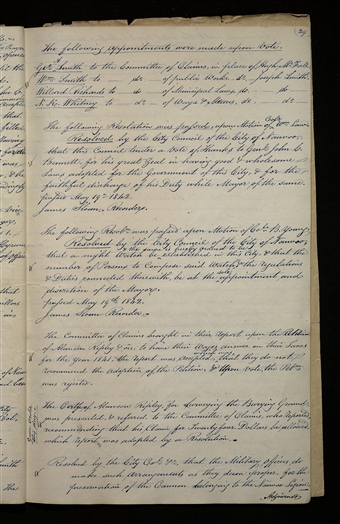 29
The following appointments were made upon Vote.
Geo. Smith to the Committee of Claims, in place of Hugh McFall.
Wm. Smith to do of public Works do. Joseph Smith.
Willard Richards to do of Municipal Laws, do. do.
N. K. Whitney to do of Ways & Means, do. do
The following Resolution was passed, upon Motion of Wm. Law.
Resolved by the City Council of the City of Nauvoo,
that this Council tender a Vote of Thanks to Genl. John C.
Bennett, for his great Zeal in having good & wholesome
Laws adopted for the Government of this City, & for the
faithful discharge of his Duty while Mayor of the same.
Passed May 19th 1842.
James Sloan, Recorder.
The following Resoln. was passed upon Motion of B. Young.
Resolved by the City Council of the City of Nauvoo,
that a night Watch be established in this City, & that the
number of Persons to Compose said Watch, & the regulation
& Duties connected therewith, be at the sole appointment and
discretion of the Mayor.
passed May 19th 1842.
James Sloan Recorder.
The Committee of Claims brought in their report upon the Petition
of Alanson Ripley & ors. to have their
for the Year 1841. the report was accepted, that they do not
recommend the adoption of the Petition, & Upon Vote, the Petn.
was rejected.
The of Alanson Ripley, for Surveying the Burying Ground
was presented, & referred to the Committee of Claims, who reported
recommending that his Claim for Twenty four Dollars be allowed
which report was adopted by a Resolution.
Resolved by the City &c. that the Military Officers do
make such arrangements as they deem proper, for the
preservation of the Cannon belonging to the Nauvoo Legion.
Adjourned